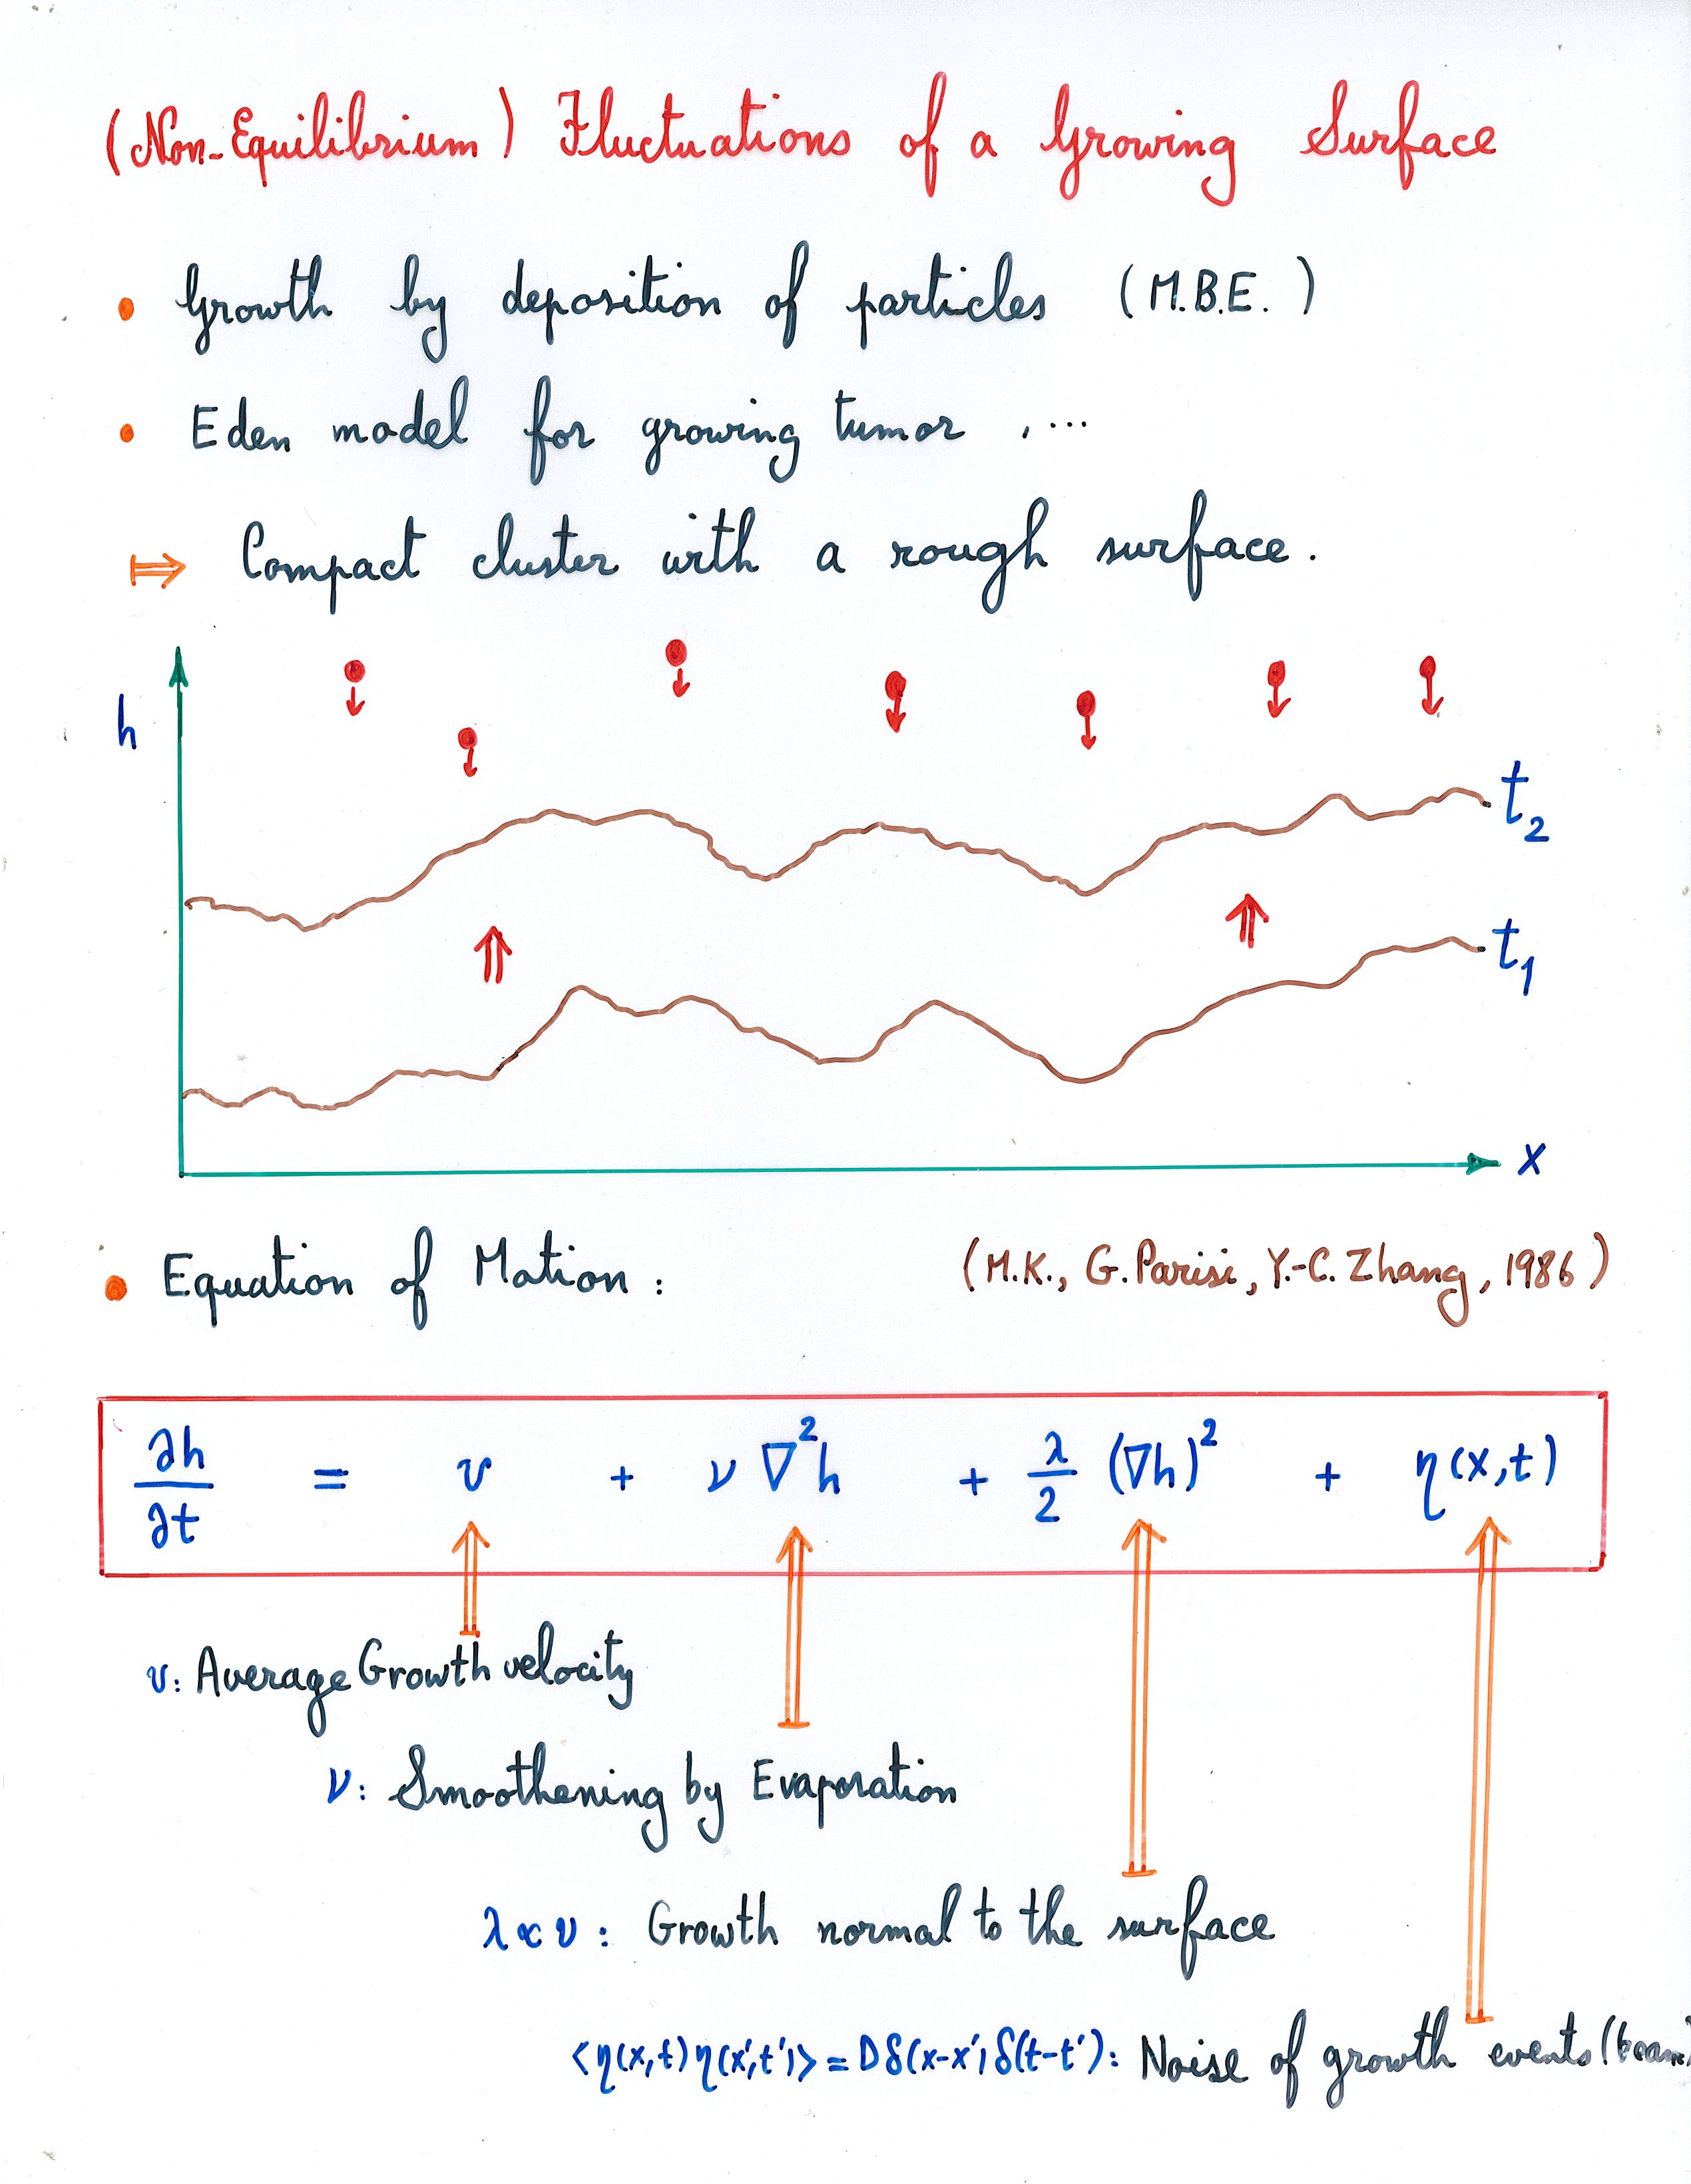 (Non-Equilibrium) Fluctuations of a Growing Surface
• Growth by deposition of particles (M.B.E.)
• Eden model for growing tumor , ...
⇒ Compact cluster with a rough surface.
h
t₂
t₁
x
• Equation of Motion : (M.K., G. Parisi, Y.-C. Zhang, 1986)
∂h/∂t = v + ν ∇²h + λ/2 (∇h)² + η(x,t)
v: Average Growth velocity
ν: Smoothening by Evaporation
λ ∝ v : Growth normal to the surface
<η(x,t) η(x',t')> = D δ(x-x') δ(t-t') : Noise of growth events (beam)